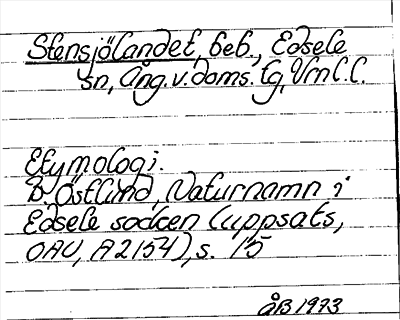 Stensjölandet, beb., Edsele
sn, Ång. v. doms. tg, Vrnl. l.
Etymologi.
B. Östlund, Naturnamn i
Edsele socken (uppsats,
OAU, A 2154), s. 15
ÅB 1973